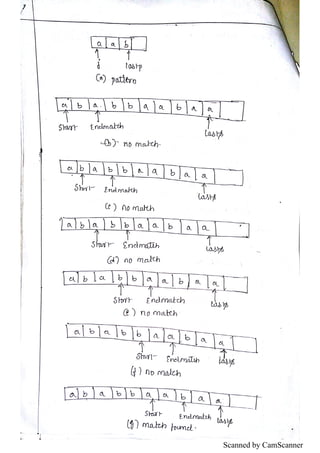 a a b
j lastp
(a) pattern
a b a b b a a b a a
Start Endmatch lasts
(b) no match
a b a b b a a b a a
Start Endmatch lasts
(c) no match
a b a b b a a b a a
Start Endmatch lasts
(d) no match
a b a b b a a b a a
Start Endmatch lasts
(e) no match
a b a b b a a b a a
Start Endmatch lasts
(f) no match
a b a b b a a b a a
Start Endmatch lasts
(g) match found.
Scanned by CamScanner